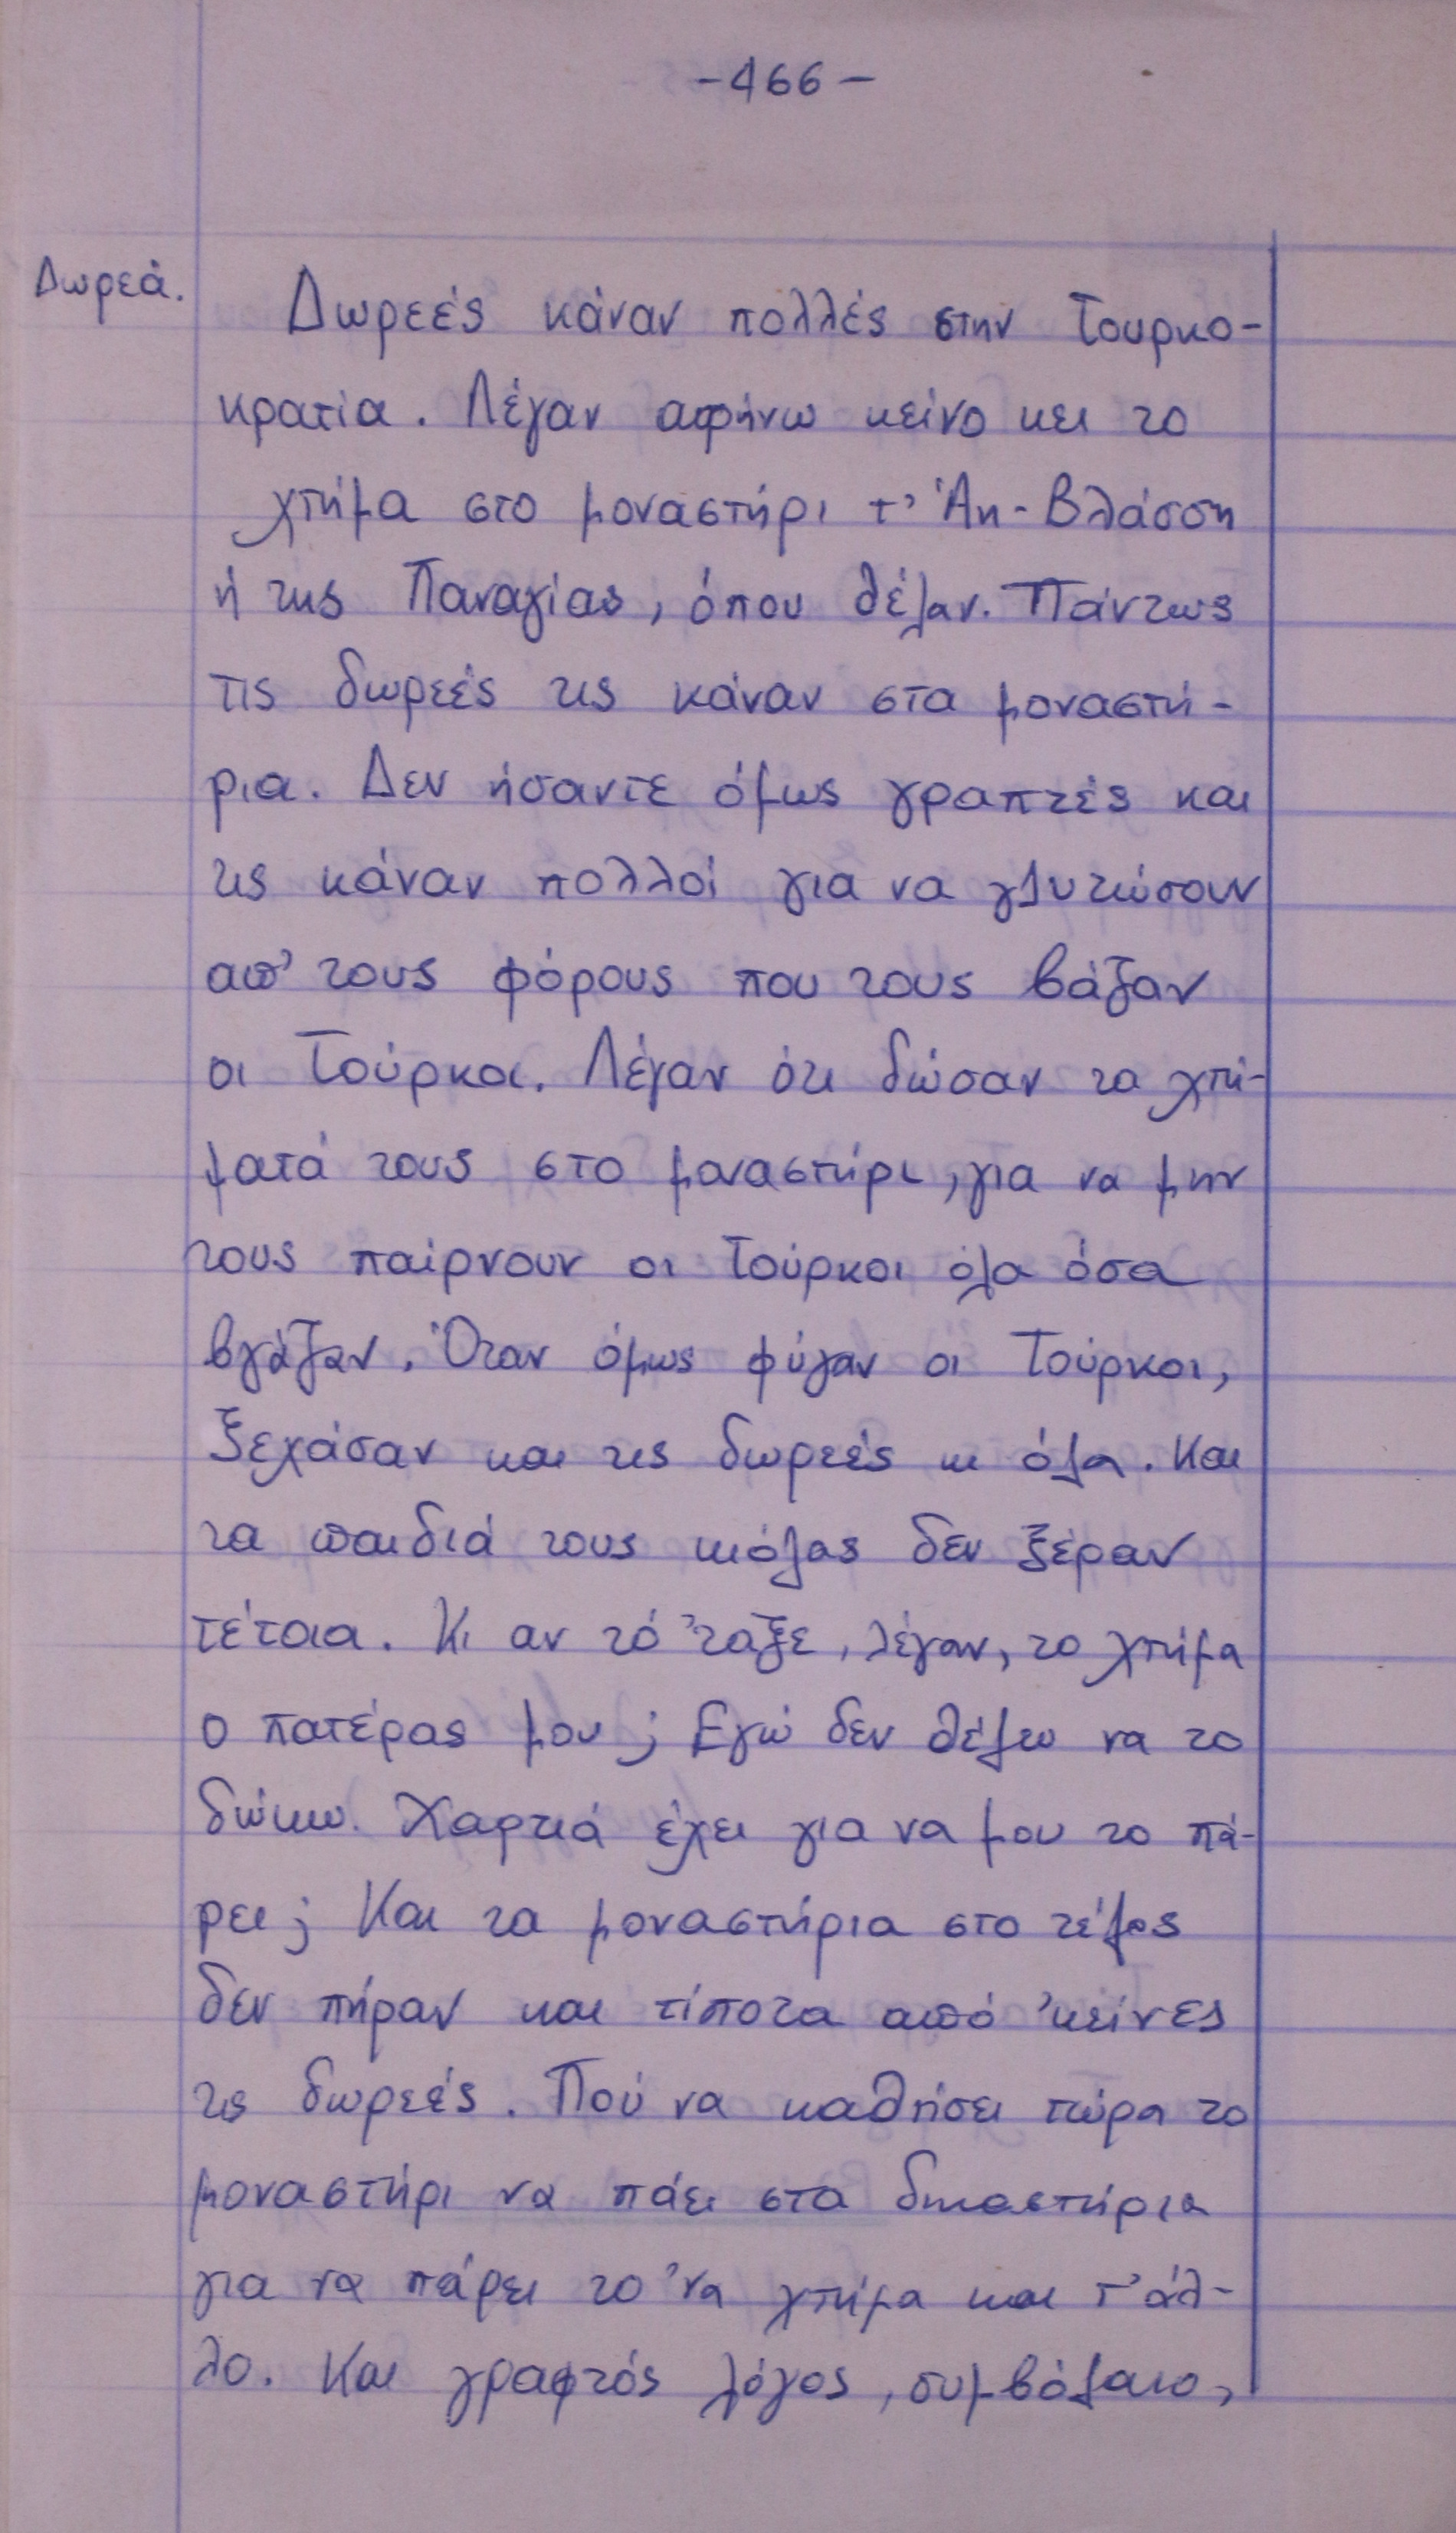 -466-
Δωρεά.
Δωρεές κάναν πολλές στην Τουρκο-
κρατία. Λέγαν αφήνω κείνο κει το
χτήμα στο μοναστήρι τ' Άη-Βλάσση
ή της Παναγίας, όπου θέλαν. Πάντως
τις δωρεές τις κάναν στα μοναστή-
ρια. Δεν ήσαντε όμως γραπτές και
τις κάναν πολλοί για να γλυτώσουν
απ' τους φόρους που τους βάζαν
οι Τούρκοι. Λέγαν ότι δώσαν τα χτή-
ματά τους στο μοναστήρι, για να μην
τους παίρνουν οι Τούρκοι όλα όσα
βγάζαν. Όταν όμως φύγαν οι Τούρκοι,
ξεχάσαν και τις δωρεές κι όλα. Και
τα παιδιά τους κιόλας δεν ξέραν
τέτοια. Κι αν τό 'ταξε, λέγαν, το χτήμα
ο πατέρας μου; Εγώ δεν θέλω να το
δώκω. Χαρτιά έχει για να μου το πά-
ρει; Και τα μοναστήρια στο τέλος
δεν πήραν και τίποτα από 'κείνες
τις δωρεές. Πού να καθήσει τώρα το
μοναστήρι να πάει στα δικαστήρια
για να πάρει το 'να χτήμα και τ' άλ-
λο. Και γραφτός λόγος, συμβόλαιο,